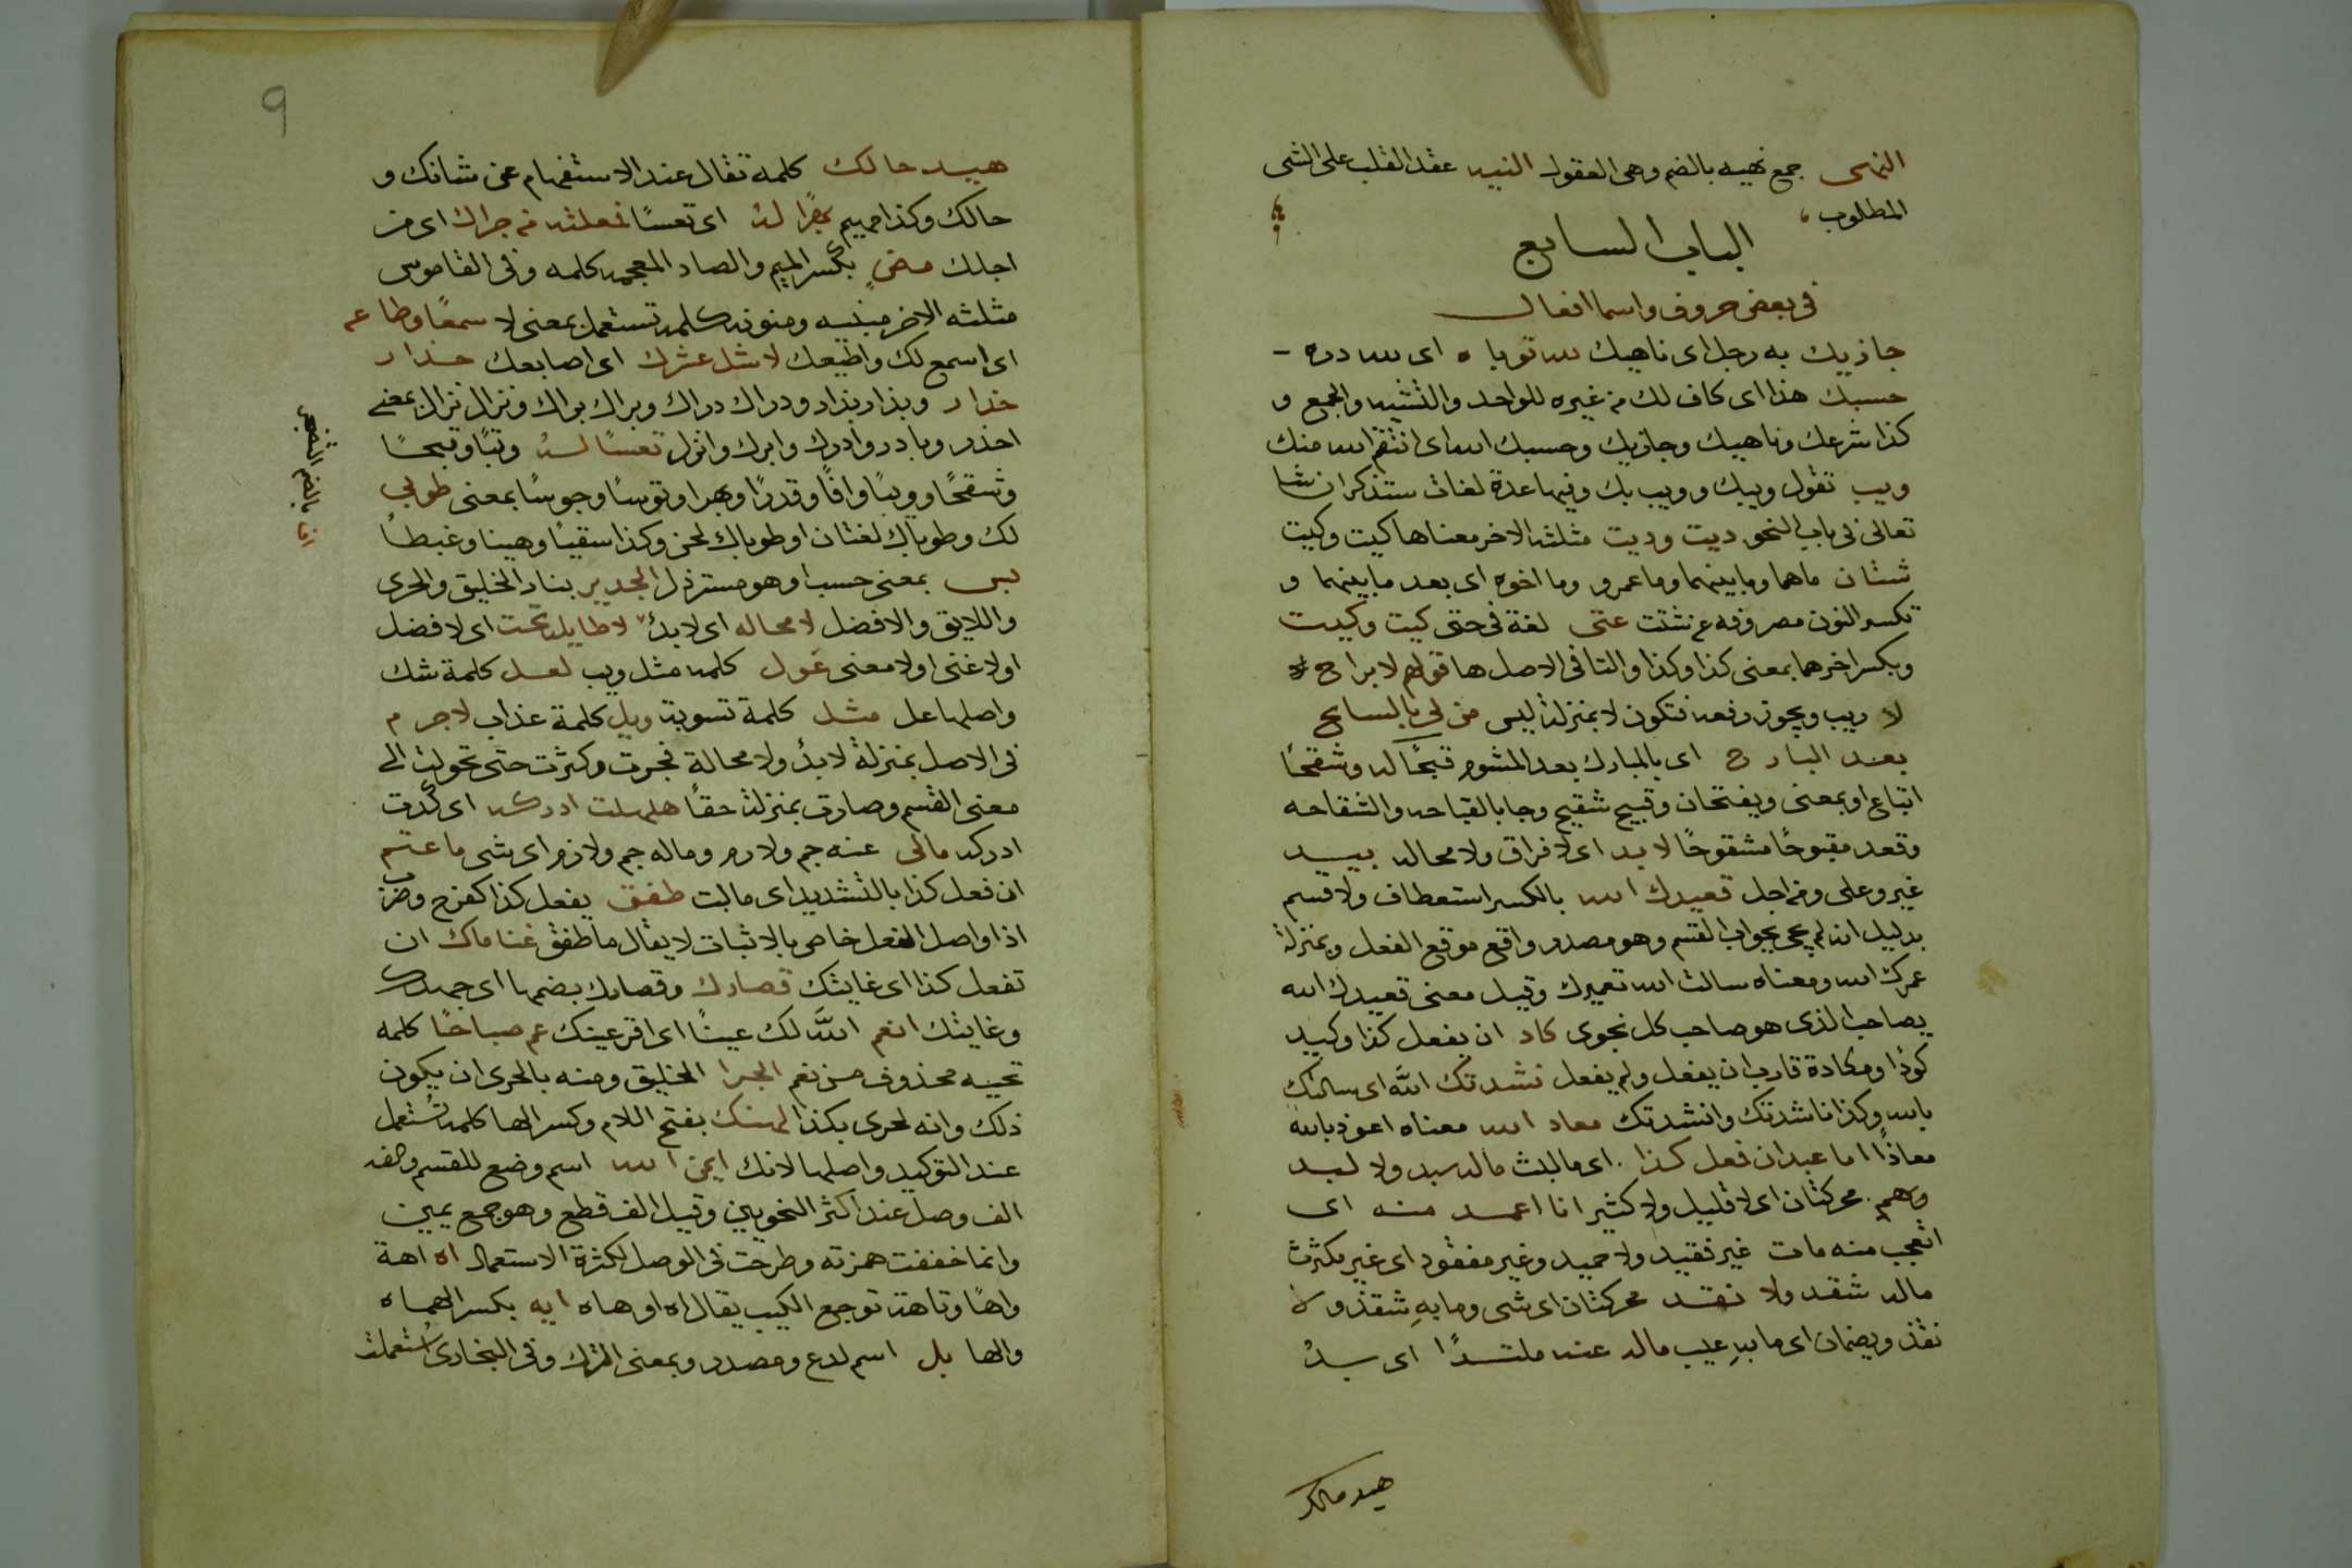 النهى جمع نهيه بالضم وهى العقول النيه عقد القلب على الشى
المطلوب
الباب السابع
فى بعض حروف واسما افعال
جازيك به رجل اى ناهيك لله توباه اى لله دره
حسبك هذا اى كاف لك من غيره للواحد والتثنيه والجمع و
كذا شرعك وناهيك وجازيك وحسبك الله اى انتقم الله منك
ويب تقول ويبك وويب بك وفيها عدة لغات ستذكر ان شا
تعالى فى باب النحو ذيت وذيت مثلثه الاخر معناها كيت وكيت
شتان ماهما وما بينهما وما عمرو وما اخوه اى بعد ما بينهما و
تكسر النون مصروفه عن شتت عتى لغة فى حتى كيت وكيت
وبكسر اخرهما بمعنى كذا وكذا والتا فى الاصل ها قولهم لا براح
لا ريب ويجوز رفعه فتكون لا بمنزلة ليس من لى بالسانح
بعد البارح اى بالمبارك بعد المشوم قبحًا له وشقحًا
اتباع او بمعنى ويفتحان وقبيح شقيح وجا بالقباحه والشقاحه
وقعد مقبوحًا مشقوحًا لا بد اى لا فراق ولا محاله بيد
غير وعلى ومن اجل قعيدك الله بالكسر استعطاف ولا قسم
بدليل انه لم يجى بجواب القسم وهو مصدر واقع موقع الفعل وبمنزلة
عمرك الله ومعناه سالت الله تعميرك وقيل معنى قعيدك الله
بصاحب الذى هو صاحب كل نجوى كاد ان يفعل كذا وكيد
كودًا ومكادة قارب ان يفعل ولم يفعل نشدتك الله اى سالتك
بالله وكذا ناشدتك وانشدتك معاذ الله معناه اعوذ بالله
معاذًا اما عبد ان فعل كذا اى ما لبث ماله سبد ولا لبد
وهم محركتان اى لا قليل ولا كثير انا اعمد منه اى
اتعجب منه مات غير فقيد ولا حميد وغير مفقود اى غير مكترث
ماله شقد ولا نقد محركتان اى شى وما به شقذ ولا
نقذ ويضمان اى ما به عيب ماله عنه ملتدًا اى بد
هيد مالك
9
هيد مالك كلمة تقال عند الاستفهام عن شانك و
حالك وكذا مهيم بهرًا له اى تعسًا فعلته من جراك اى من
اجلك مضٍ بكسر الميم والضاد المعجمه كلمه وفى القاموس
مثلثه الاخر مبنيه ومنونه كلمه تستعمل بمعنى لا سمعًا وطاعه
اى اسمع لك واطيعك لا شل عشرك اى اصابعك حذار
حذار وبدار بدار ودراك دراك وبراك براك ونزال نزال بمعنى
احذر وبادر وادرك وابرك وانزل تعسًا له وتبًا وقبحًا
وشقحًا وويبًا وافًا وقذرًا وبهرا وتوسًا وجوسًا بمعنى طوبى
لك وطوباك لغتان او طوباك لحن وكذا سقيًا وهينا وغبطًا
بس بمعنى حسب او هو مسترذل الجدير بناد الخليق والحرى
واللايق والافضل لا محاله اى لا بدّ لا طايل تحت اى لا فضل
اولا غنى اولا معنى عول كلمه مثل ويب لعل كلمة شك
واصلها عل مثل كلمة تسوية ويل كلمة عذاب لا جرم
فى الاصل بمنزلة لا بدّ ولا محالة فجرت وكثرت حتى تحولت الى
معنى القسم وصارت بمنزلة حقًا هلهلت ادركه اى كدت
ادركه مالى عنه حم ولا رم وماله حم ولا رم اى شى ما عتم
ان فعل كذا بالتشديد اى ما لبث طفق يفعل كذا كفرح وضرب
اذا واصل الفعل خاص بالاثبات لا يقال ما طفق غناماك ان
تفعل كذا اى غايتك قصارك وقصارك بضمها اى جهدك
وغايتك انعم الله لك عينًا اى اقر عينك عم صباحًا كلمه
تحيه محذوف من نعم الحرا الخليق ومنه بالحرى ان يكون
ذلك وانه لحرى بكذا لهنك بفتح اللام وكسر الها كلمه تستعمل
عند التوكيد واصلها لانك ايمن الله اسم وضع للقسم والفه
الف وصل عند اكثر النحويين وقيل الف قطع وهو جمع يمين
وانما خففت همزته وطرحت فى الوصل لكثرة الاستعمال اه اهة
واهًا وتاهة توجع الكيب يقال اه او هاه ايه بكسر الهمزه
والها بل اسم لدع ومصدر وبمعنى الترك وفى البخارى استعملت
انا بالضم